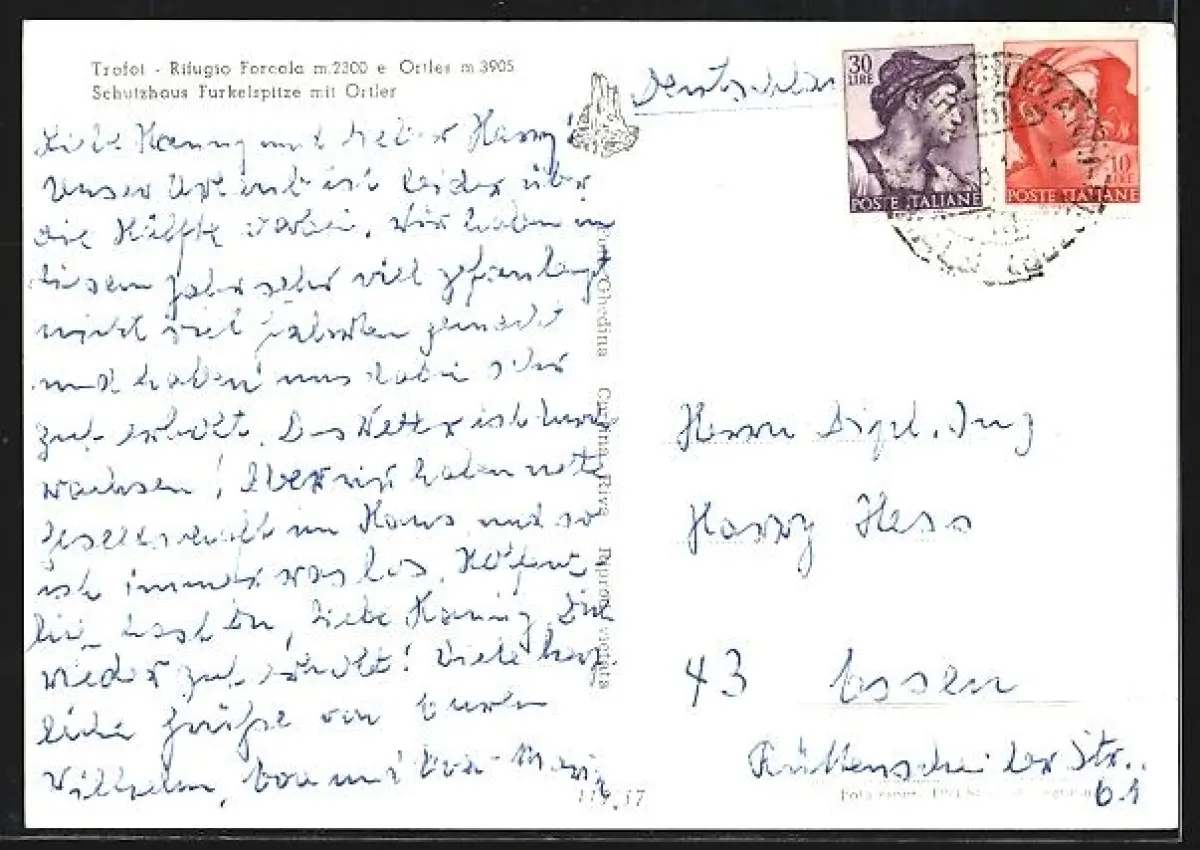 Trafoi - Rifugio Forcola m.2300 e Ortles m.3905
Schutzhaus Furkelspitze mit Ortler
Liebe Hanny und lieber Harry!
Unser Urlaub ist leider über
die Hälfte vorbei. Wir haben in
diesem Jahr sehr viel gefaulenzt
nicht viel gemacht
und haben uns dabei sehr
gut erholt. Das Wetter ist durch
wachsen! Aber wir haben nette
Gesellschaft im Haus und so
ist immer was los. Hoffent-
lich hast Du, liebe Hanny, Dich
wieder gut erholt! Viele herz-
liche Grüße von Euren
Wilhelm, Eva und Eva-Maria
Ghedina
Riva
Ripr. vietata
119.17
Deutschland
30
LIRE
POSTE ITALIANE
10
LIRE
POSTE ITALIANE
Herrn Dipl. Ing
Harry Hess
43 Essen
Rüttenscheider Str.
61